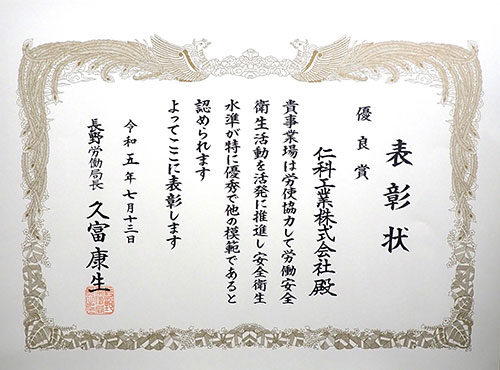 表彰状
優良賞
仁科工業株式会社殿
貴事業場は労使協力して労働安全
衛生活動を活発に推進し安全衛生
水準が特に優秀で他の模範であると
認められます
よってここに表彰します
令和五年七月十三日
長野労働局長 久富康生